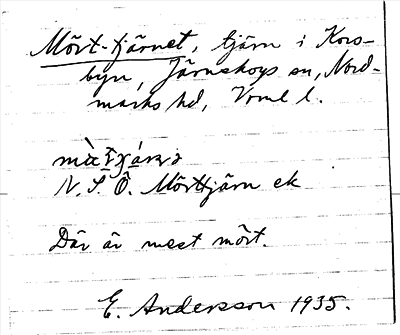 Mört-tjärnet, tjärn i Kors-
byn, Järnskogs sn, Nord-
marks hd, Vrml l.
N. S. Ö. Mörttjärn ek
Där är mest mört.
E. Andersson 1935.